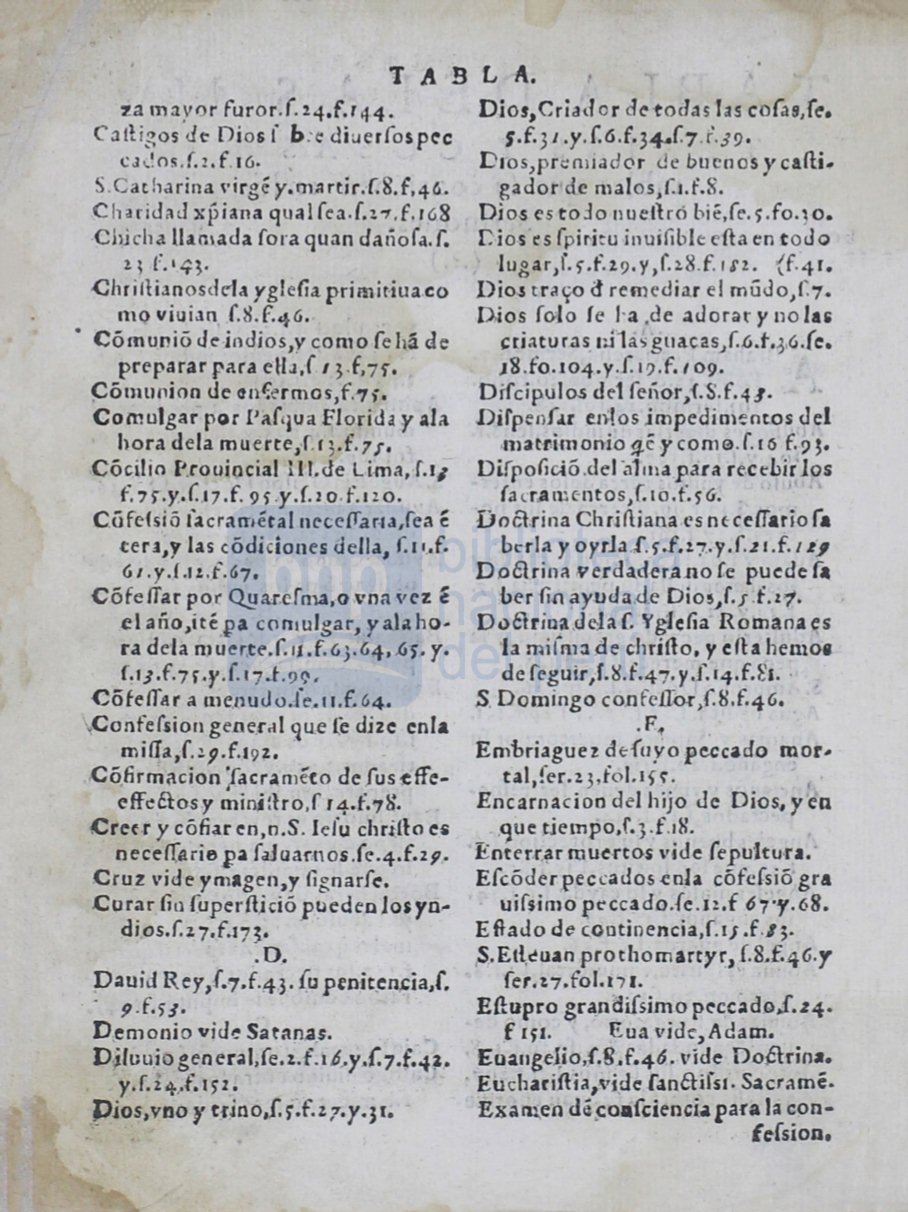 TABLA.
za mayor furor.ſ.24.f.144.
Caſtigos de Dios ſ bre diuerſos pec
cados.ſ.2.f.16.
S.Catharina virgẽ y.martir.ſ.8.f,46.
Charidad xp̃iana qual ſea.ſ.27.f.168
Chicha llamada ſora quan dañoſa.ſ.
23 f.143.
Chriſtianosdela ygleſia primitiua co
mo viuian ſ.8.f.46.
Cõmuniõ de indios,y como ſe hã de
preparar para ella,ſ 13.f,75.
Cõmunion de enfermos,f.75.
Comulgar por Paſqua Florida y ala
hora dela muerte,ſ.13.f.75.
Cõcilio Prouincial III.de Lima, ſ.13
f.75.y.ſ.17.f. 95.y.ſ.20.f.120.
Cõfeſsiõ ſacramẽtal neceſſaria,ſea ẽ
tera,y las cõdiciones della, ſ.11.f.
61.y.ſ.12.f.67.
Cõfeſſar por Quareſma,o vna vez ẽ
el año,itẽ pa comulgar, y ala ho-
ra dela muerte.ſ.11.f.63.64, 65. y.
ſ.13.f.75.y.ſ.17.f.99.
Cõfeſſar a menudo.ſe.11.f.64.
Confeſsion general que ſe dize enla
miſſa,ſ.29.f.192.
Cõfirmacion ſacramẽto de ſus effe-
effectos y miniſtro,ſ 14.f.78.
Creer y cõfiar en,n.S. Ieſu chriſto es
neceſſario pa ſaluarnos.ſe.4.f.29.
Cruz vide ymagen,y ſignarſe.
Curar ſin ſuperſticiõ pueden los yn-
dios.ſ.27.f.173.
.D.
Dauid Rey,ſ.7.f.43. ſu penitencia,ſ.
9.f.53.
Demonio vide Satanas.
Diluuio general,ſe.2.f.16.y.ſ.7.f.42.
y.ſ.24.f.152.
Dios,vno y trino,ſ.5.f.27.y.31.
Dios,Criador de todas las coſas,ſe.
5.f.31.y.ſ.6.f.34.ſ.7.f.39.
Dios,premiador de buenos y caſti-
gador de malos,ſ.1.f.8.
Dios es todo nueſtro biẽ,ſe.5.fo.30.
Dios es ſpiritu inuiſible eſta en todo
lugar,ſ.5.f.29.y,ſ.28.f.182. (f.41.
Dios traço đ remediar el mũdo,ſ.7.
Dios ſolo ſe ha de adorar y no las
criaturas ni las guacas,ſ.6.f.36.ſe.
18.fo.104.y.ſ.19.f.109.
Diſcipulos del ſeñor,ſ.8.f.43.
Diſpenſar enlos impedimentos del
matrimonio q̃ẽ y como.ſ.16 f.93.
Diſpoſiciõ del alma para recebir los
ſacramentos,ſ.10.f.56.
Doctrina Chriſtiana es neceſſario ſa
berla y oyrla.ſ.5.f.27.y.ſ.21.f.129
Doctrina verdadera no ſe puede ſa
ber ſin ayuda de Dios,ſ.5.f.27.
Doctrina dela ſ. Ygleſia Romana es
la miſma de chriſto, y eſta hemos
de ſeguir,ſ.8.f.47.y.ſ.14.f.81.
S. Domingo confeſſor,ſ.8.f.46.
.E.
Embriaguez de ſuyo peccado mor-
tal,ſer.23,fol.155.
Encarnacion del hijo de Dios, y en
que tiempo,ſ.3.f.18.
Enterrar muertos vide ſepultura.
Eſcõder peccados enla cõfeſsiõ gra
uiſsimo peccado.ſe.12.f 67.y.68.
Eſtado de continencia,ſ.15.f.83.
S.Eſteuan prothomartyr, ſ.8.f.46.y
ſer.27.fol.171.
Eſtupro grandiſsimo peccado,ſ.24.
f 151. Eua vide,Adam.
Euangelio,ſ.8.f.46. vide Doctrina.
Euchariſtia,vide ſanctiſsi. Sacramẽ.
Examen de conſciencia para la con-
feſsion.
bnp
biblioteca
nacional
del perú